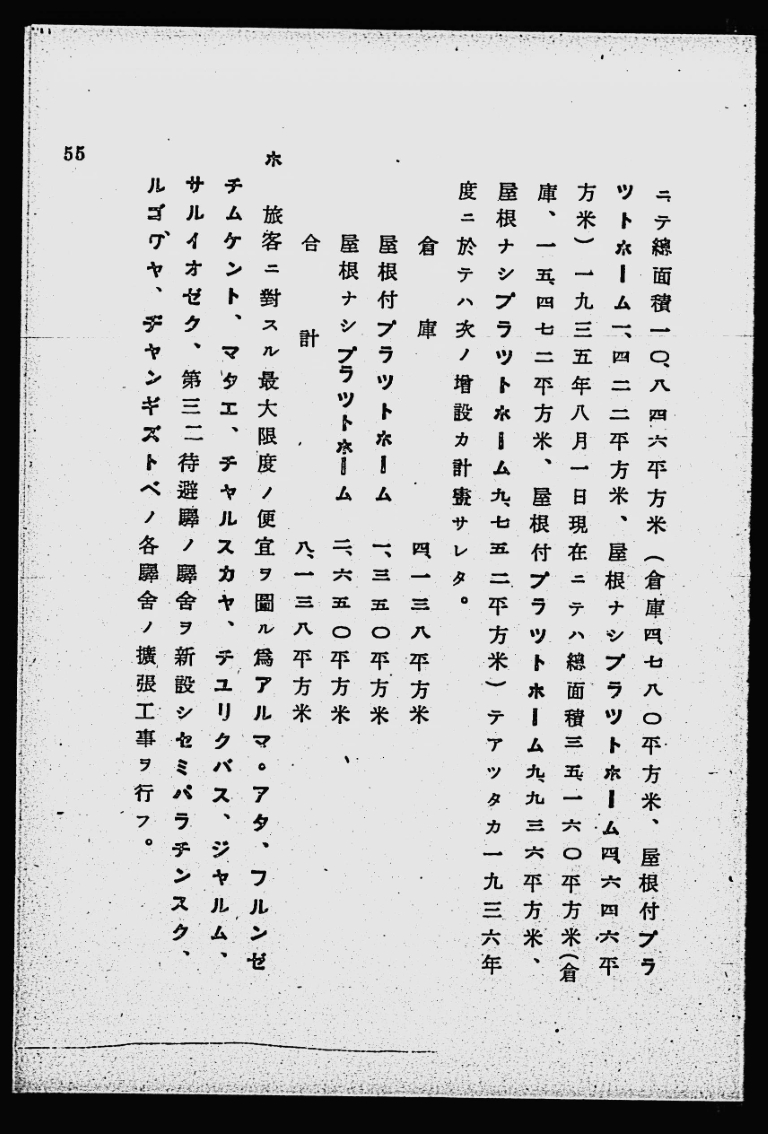 ニテ總面積一〇、八四六平方米（倉庫四、七八〇平方米、屋根付プラ
ツトホーム一、四二二平方米、屋根ナシプラツトホーム四、六四六平
方米）一九三五年八月一日現在ニテハ總面積三五、一六〇平方米（倉
庫、一五、四七二平方米、屋根付プラツトホーム九、九三六平方米、
屋根ナシプラツトホーム九、七五二平方米）テアツタカ一九三六年
度ニ於テハ次ノ增設カ計畫サレタ。
倉庫　四、一三八平方米
屋根付プラツトホーム　一、三五〇平方米
屋根ナシプラツトホーム　二、六五〇平方米、
合計　八、一三八平方米
ホ　旅客ニ對スル最大限度ノ便宜ヲ圖ル爲アルマ。アタ、フルンゼ
チムケント、マタエ、チャルスカヤ、チユリクバス、ジャルム、
サルイオゼク、第三二待避驛ノ驛舍ヲ新設シセミパラチンスク、
ルゴワ゛ヤ、ヂャンギズトベノ各驛舍ノ擴張工事ヲ行フ。
55